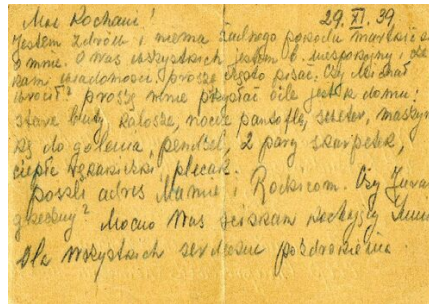 Moi Kochani! 29.XI.39.
Jestem zdrów i niema żadnego powodu martwić się
o mnie. O Was wszystkich jestem b. niespokojny i cze
kam wiadomości proszę często pisać. Czy Michał
wrócił? proszę mnie przysłać o ile jest k domu:
stare buty, kalosze, nocne pantofle, sweter, maszyn
kę do golenia, pendzel, 2 pary skarpetek,
ciepłe rękawiczki, plecak.
poszli adres Mamie i Rodzicom. Czy Jura
grzeczny? Mocno Was ściskam kochający
Dla wszystkich serdeczne pozdrowienia